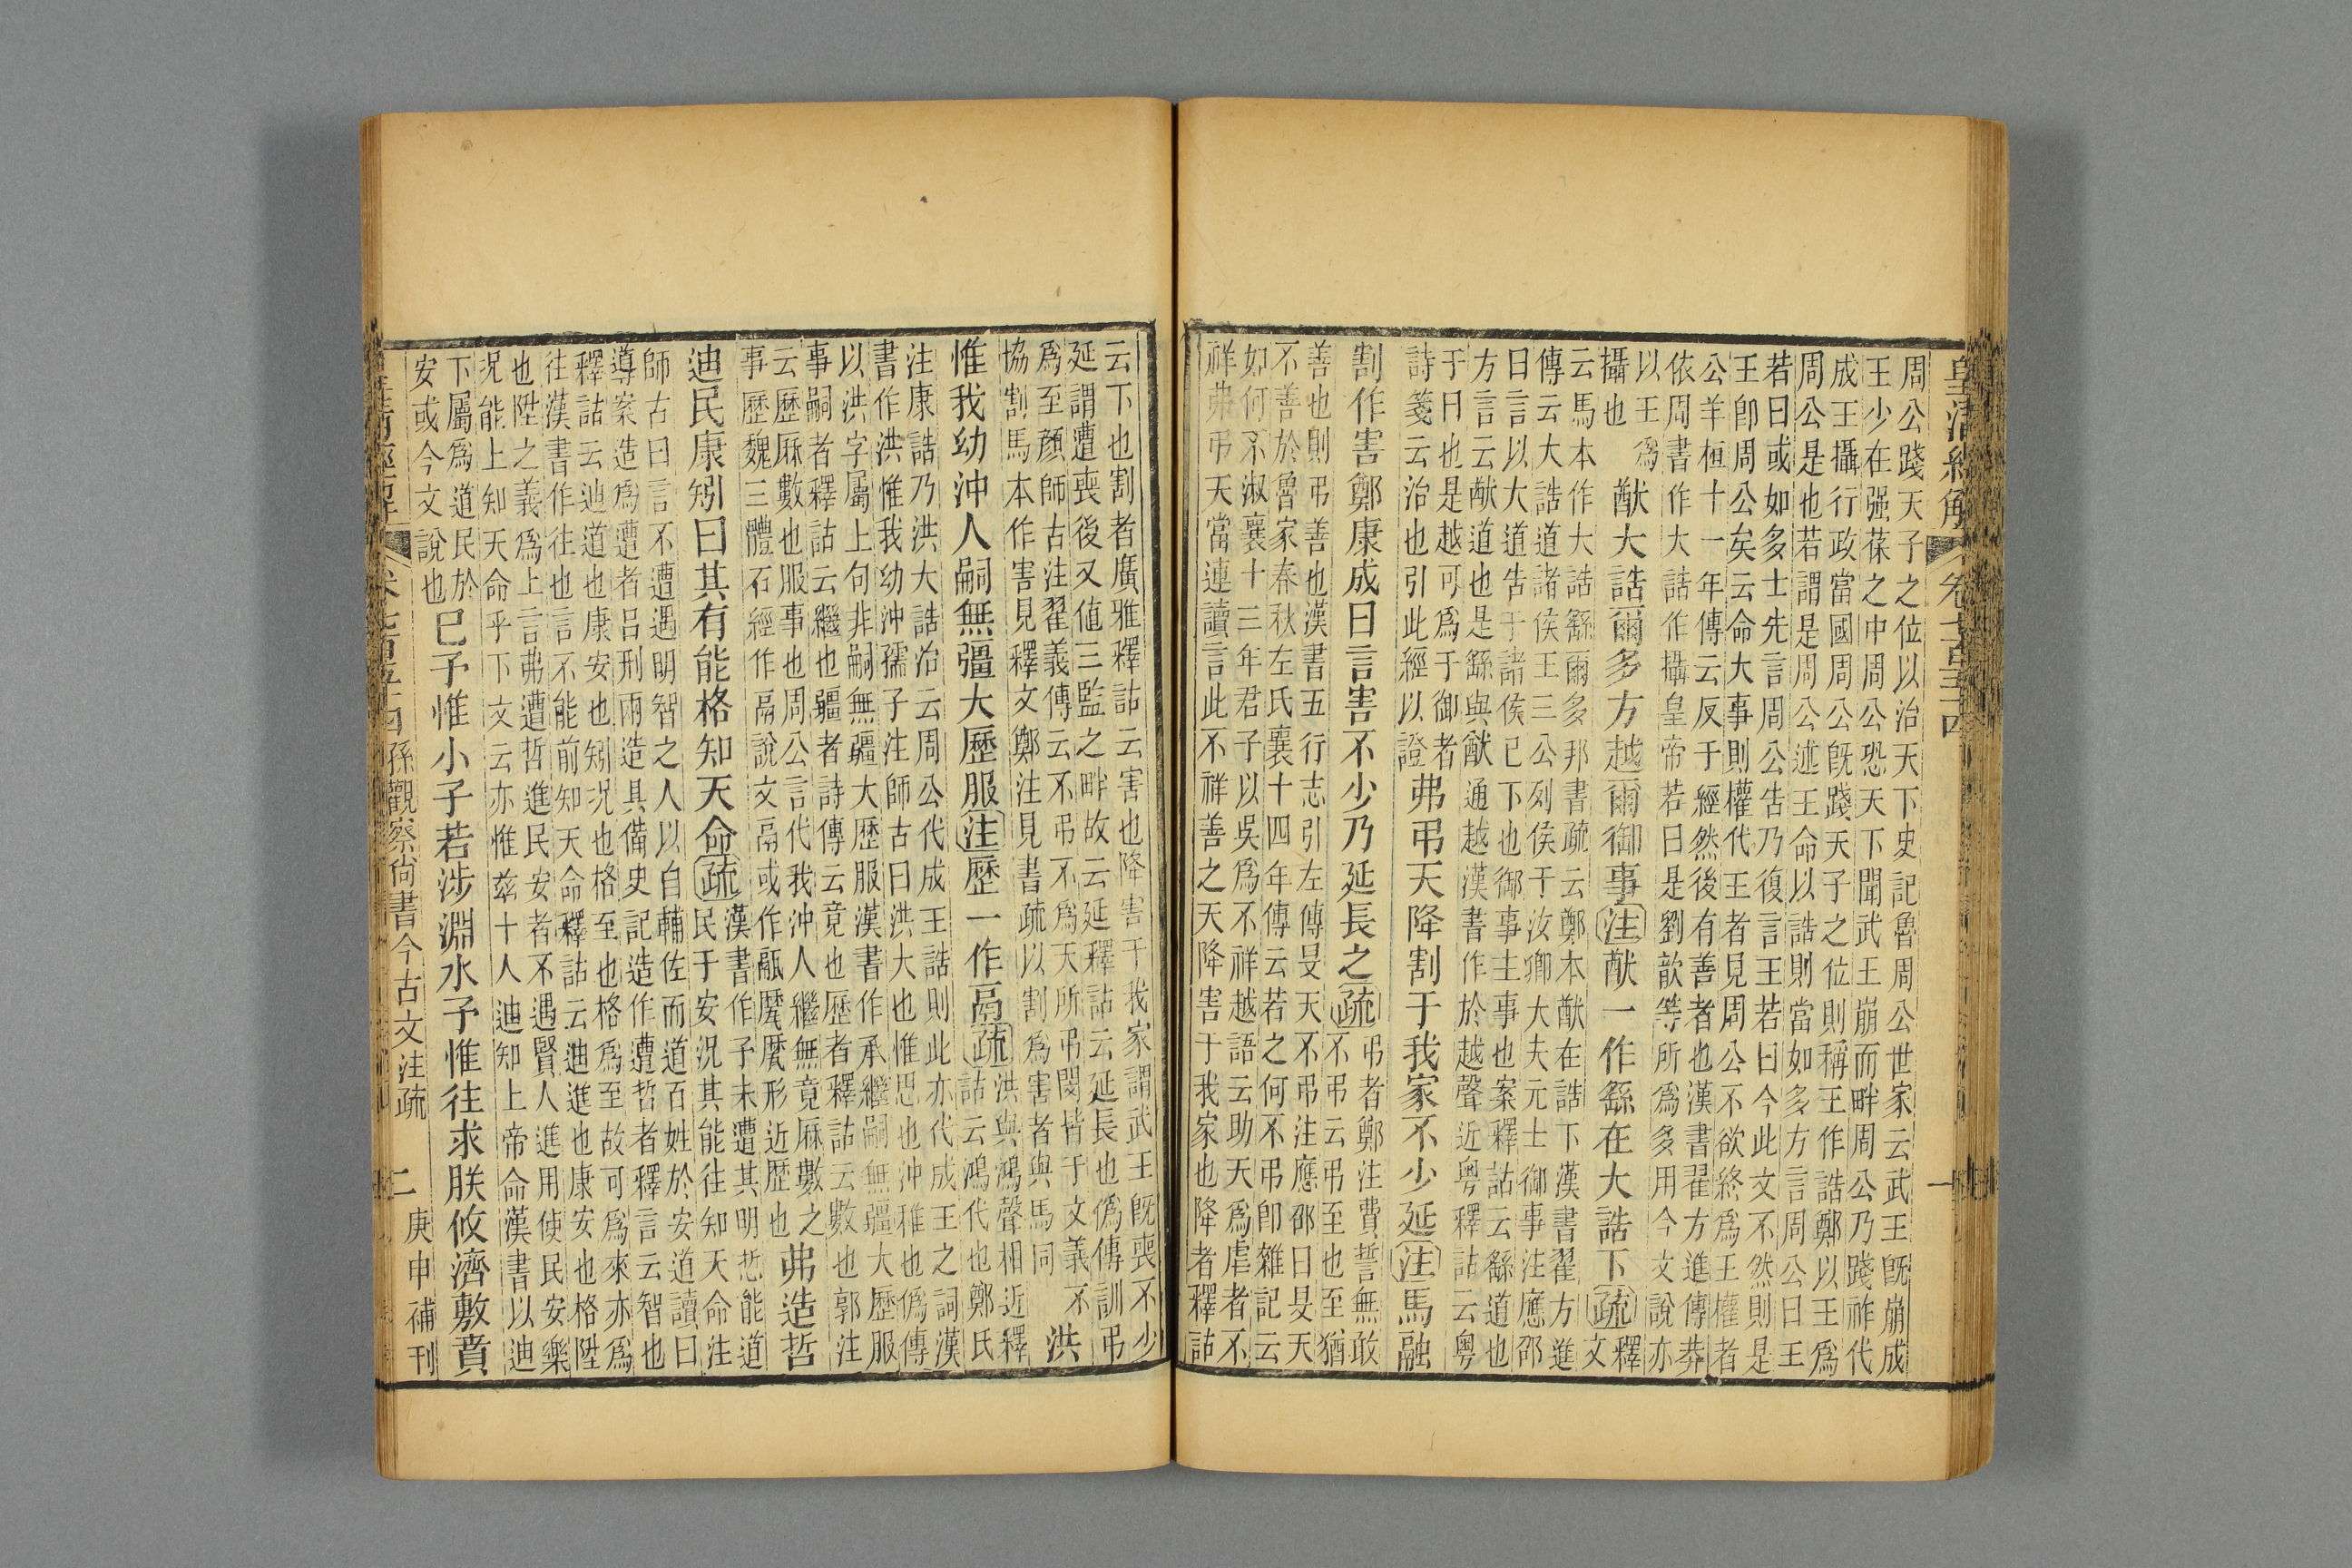 皇清經解 卷七百五十四 一
周公踐天子之位以治天下史記魯周公世家云武王既崩成
王少在强葆之中周公恐天下聞武王崩而畔周公乃踐祚代
成王攝行政當國周公既踐天子之位則稱王作誥鄭以王爲
周公是也若謂是周公述王命以誥則當如多方言周公曰王
若曰或如多士先言周公告乃復言王若曰今此文不然則是
王卽周公矣云命大事則權代王者見周公不欲終爲王權者
公羊桓十一年傳云反于經然後有善者也漢書翟方進傳莽
依周書作大誥作攝皇帝若曰是劉歆等所爲多用今文說亦
以王爲
攝也
猷大誥爾多方越爾御事注猷一作繇在大誥下疏釋
文
云馬本作大誥繇爾多邦書疏云鄭本猷在誥下漢書翟方進
傳云大誥道諸侯王三公列侯于汝卿大夫元士御事注應邵
曰言以大道告于諸侯已下也御事主事也案釋詁云繇道也
方言云猷道也是繇與猷通越漢書作於越聲近粵釋詁云粵
于曰也是越可爲于御者
詩箋云治也引此經以證
弗弔天降割于我家不少延注馬融
割作害鄭康成曰言害不少乃延長之疏弔者鄭注費誓無敢
不弔云弔至也至猶
善也則弔善也漢書五行志引左傳旻天不弔注應邵曰旻天
不善於魯家春秋左氏襄十四年傳云若之何不弔卽雜記云
如何不淑襄十三年君子以吳爲不祥越語云助天爲虐者不
祥弗弔天當連讀言此不祥善之天降害于我家也降者釋詁
云下也割者廣雅釋詁云害也降害于我家謂武王既喪不少
延謂遭喪後又値三監之畔故云延釋詁云延長也僞傳訓弔
爲至顏師古注翟義傳云不弔不爲天所弔閔皆于文義不
協割馬本作害見釋文鄭注見書疏以割爲害者與馬同
洪
惟我幼沖人嗣無疆大歷服注歷一作鬲疏洪與鴻聲相近釋
詁云鴻代也鄭氏
注康誥乃洪大誥治云周公代成王誥則此亦代成王之詞漢
書作洪惟我幼沖孺子注師古曰洪大也惟思也沖稚也僞傳
以洪字屬上句非嗣無疆大歷服漢書作承繼嗣無疆大歷服
事嗣者釋詁云繼也疆者詩傳云竟也歷者釋詁云數也郭注
云歷厤數也服事也周公言代我沖人繼無竟厤數之
事歷魏三體石經作鬲說文鬲或作䰛䰜厤形近歷也
弗造哲
迪民康矧曰其有能格知天命疏漢書作予未遭其明悊能道
民于安況其能往知天命注
師古曰言不遭遇明智之人以自輔佐而道百姓於安道讀曰
導案造爲遭者呂刑兩造具備史記造作遭哲者釋言云智也
釋詁云迪道也康安也矧況也格至也格爲至故可爲來亦爲
往漢書作往也言不能前知天命釋詁云迪進也康安也格陞
也陞之義爲上言弗遭哲進民安者不遇賢人進用使民安樂
況能上知天命乎下文云亦惟兹十人迪知上帝命漢書以迪
下屬爲道民於
安或今文說也
已予惟小子若涉淵水予惟往求朕攸濟敷賁
皇清經解 卷七百五十四 孫觀察尚書今古文注疏 二 庚申補刊